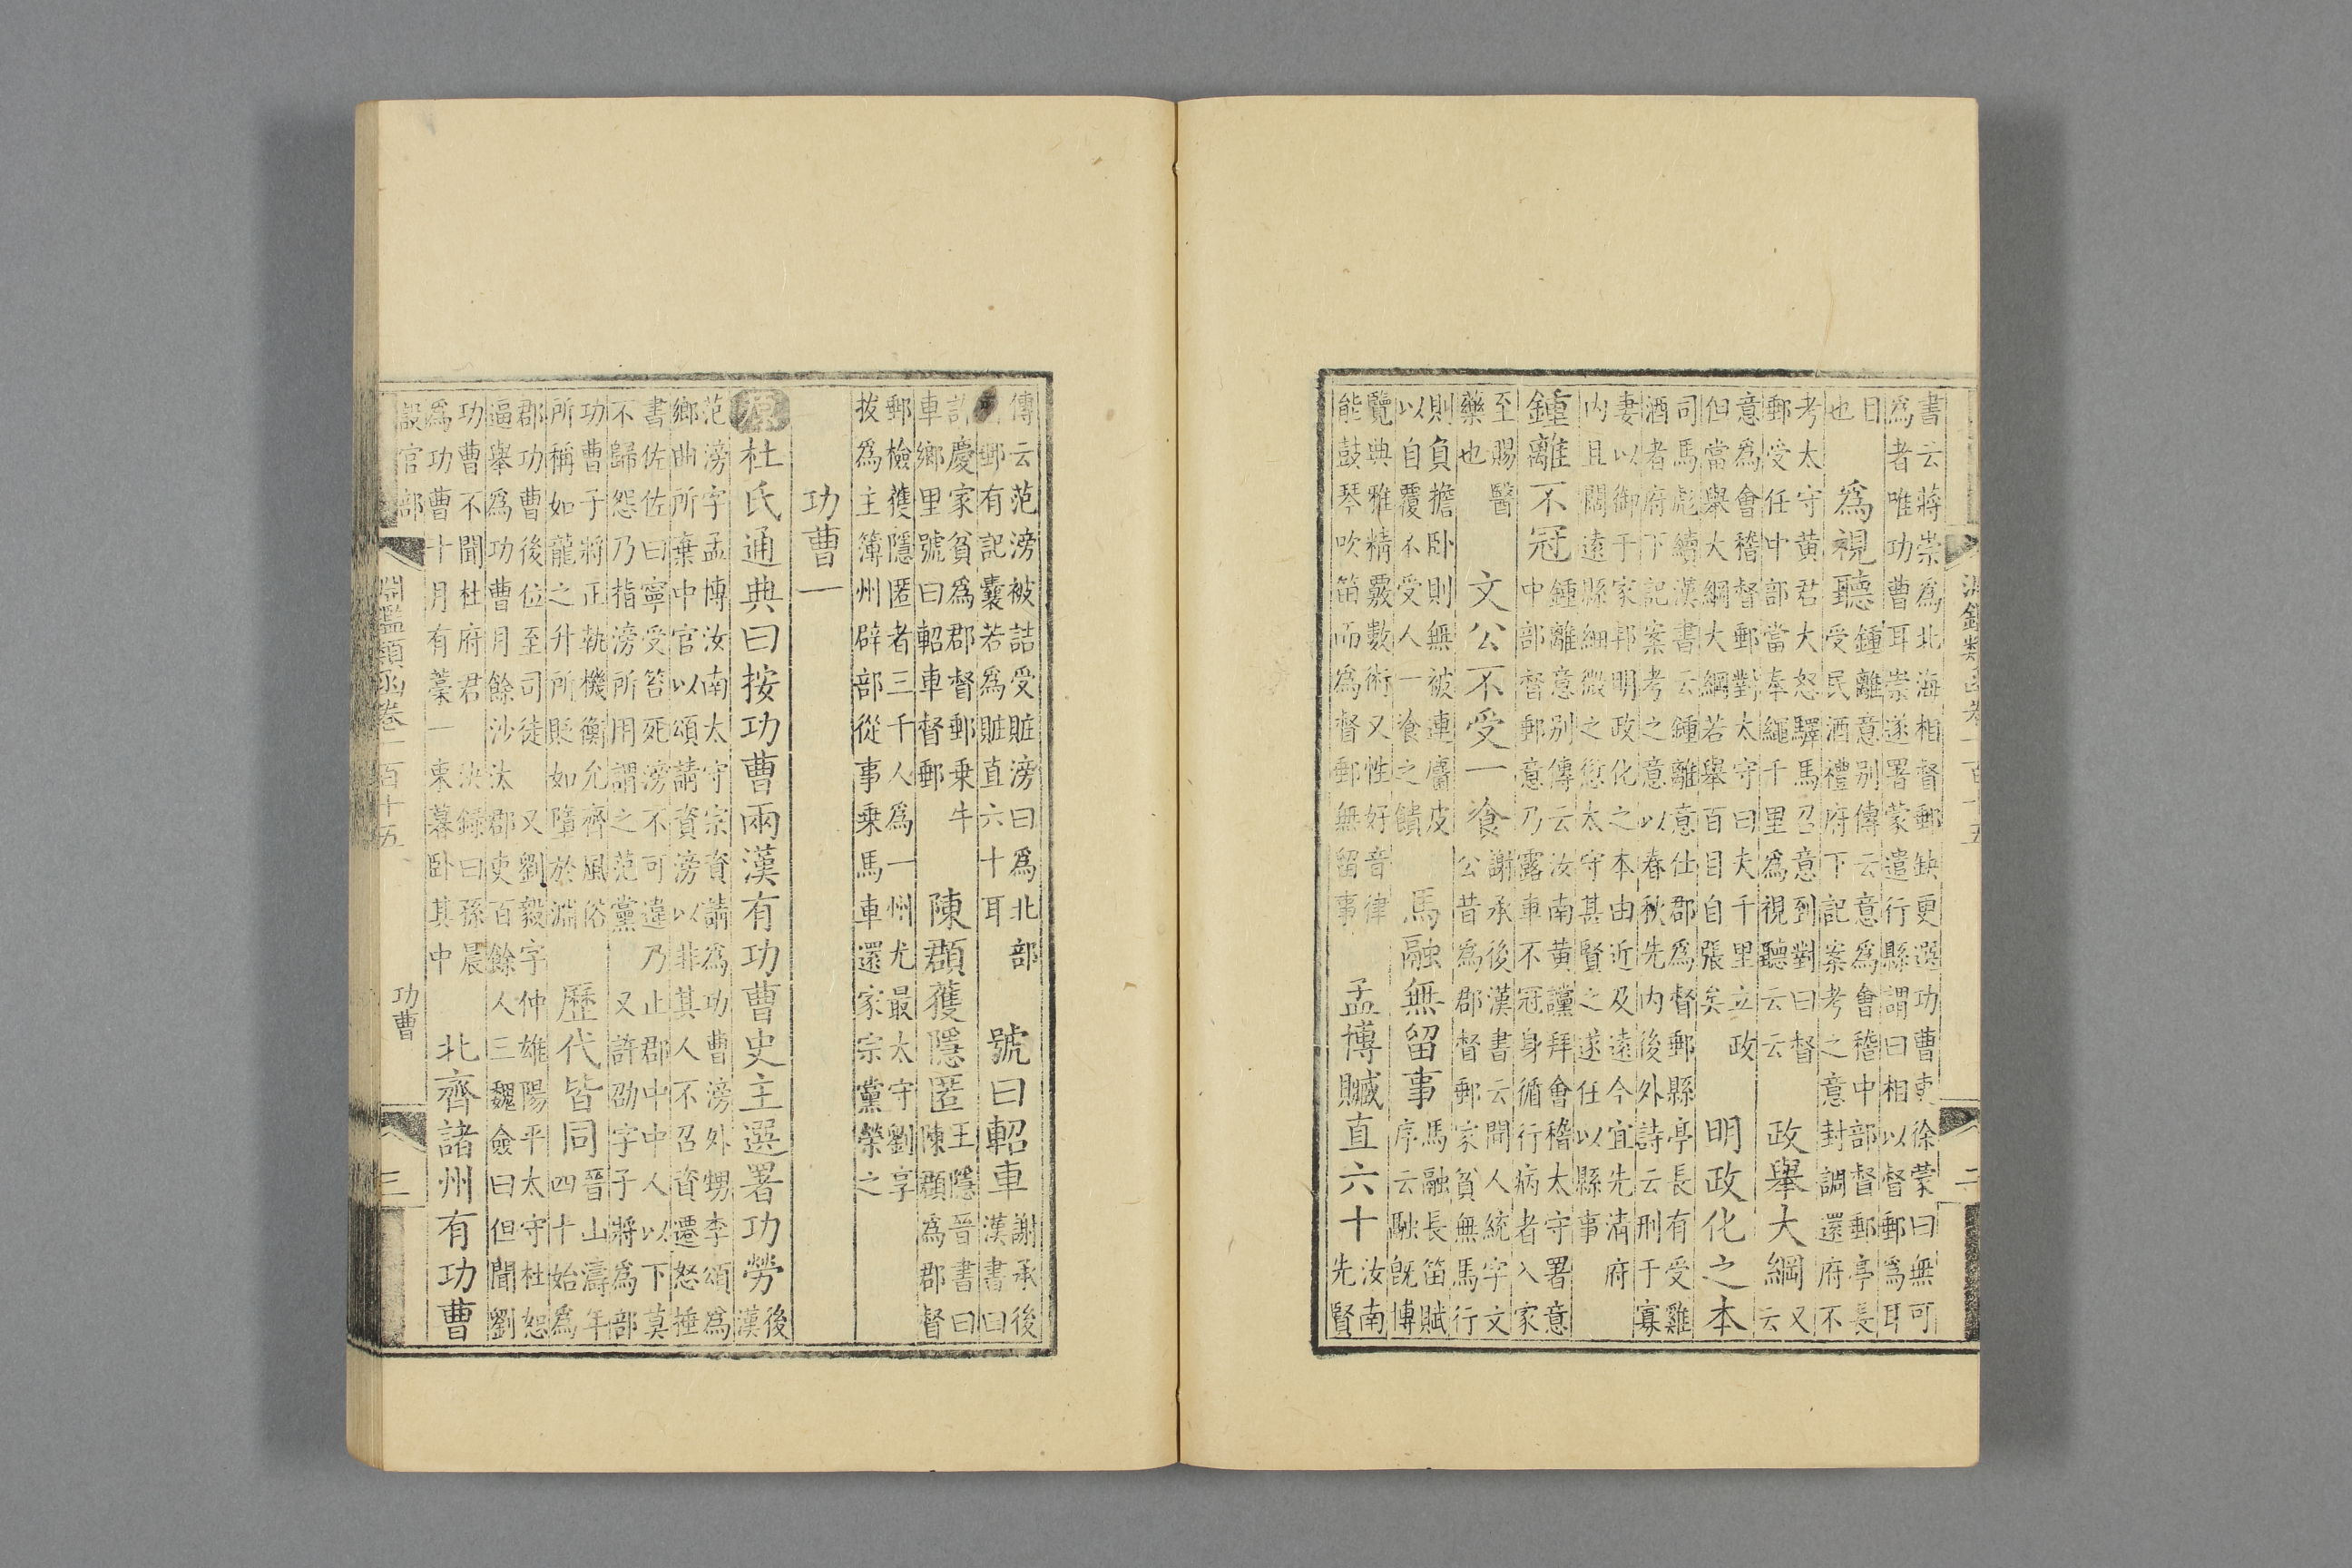 書云蔣崇為北海相督郵缺更選功曹吏徐蒙曰無可
為者唯功曹耳崇遂署蒙遣行縣謂曰相以督郵為耳
目
也
為視聽
鍾離意別傳云意為會稽中部督郵亭長
受民酒禮府下記案考之意封調還府不
考太守黄君大怒驛馬召意到對曰督
郵受任中部當奉繩千里為視聽云云
政舉大綱
又
云
意為會稽督郵對太守曰夫千里立政
但當舉大綱大綱若舉百目自張矣
明政化之本
司馬彪續漢書云鍾離意仕郡為督郵縣亭長有受雞
酒者府下記案考之意以春秋先内後外詩云刑于寡
妻以御于家邦明政化之本由近及遠今宜先清府
内且闊遠縣細微之愆太守其賢之遂任以縣事
鍾離不冠
鍾離意別傳云汝南黄讜拜會稽太守署意
中部督郵意乃露車不冠身循行病者入家
至賜醫
藥也
文公不受一飡
謝承後漢書云聞人統字文
公昔為郡督郵家貧無馬行
則負擔卧則無被連麕皮
以自覆不受人一飡之饋
馬融無留事
馬融長笛賦
序云融既博
覽典雅精覈數術又性好音律
能鼓琴吹笛而為督郵無留事
孟博贓直六十
汝南
先賢
傳云范滂被詰受贓滂曰為北部
郵有記囊若為贓直六十耳
號曰軺車
謝承後
漢書曰
許慶家貧為郡督郵乗牛
車鄉里號曰軺車督郵
陳頵獲隱匿
王隱晉書曰
陳頵為郡督
郵檢獲隱匿者三千人為一州尤最太守劉享
拔為主簿州辟部從事乗馬車還家宗黨榮之
功曹一
原杜氏通典曰按功曹兩漢有功曹史主選署功勞
後
漢
范滂字孟博汝南太守宗資請為功曹滂外甥李頌為
鄉曲所棄中官以頌請資滂以非其人不召資遷怒捶
書佐佐曰寧受笞死滂不可違乃止郡中中人以下莫
不歸怨乃指滂所用謂之范黨 又許劭字子將為部
功曹子將正執機衡允齊風俗
所稱如龍之升所貶如墮於淵
歷代皆同
晉山濤年
四十始為
郡功曹後位至司徒 又劉毅字仲雄陽平太守杜恕
逼舉為功曹月餘沙汰郡吏百餘人三魏僉曰但聞劉
功曹不聞杜府君 決録曰孫晨
為功曹十月有藁一束暮卧其中
北齊諸州有功曹
淵鑑類函卷一百十五
功曹
三